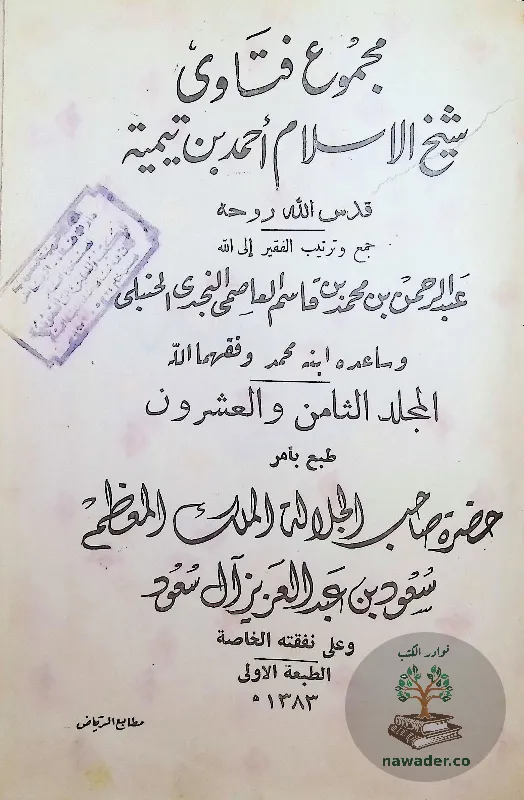 مجموع فتاوى
شيخ الاسلام أحمد بن تيمية
قدس الله روحه
جمع وترتيب الفقير إلى الله
عبد الرحمن بن محمد بن قاسم العاصمى النجدى الحنبلى
وساعده ابنه محمد وفقهما الله
المجلد الثامن والعشرون
طبع بأمر
حضرة صاحب الجلالة الملك المعظم
سعود بن عبد العزيز آل سعود
وعلى نفقته الخاصة
الطبعة الاولى
١٣٨٣ ه
مطابع الرياض
نوادر الكتب
nawader.co